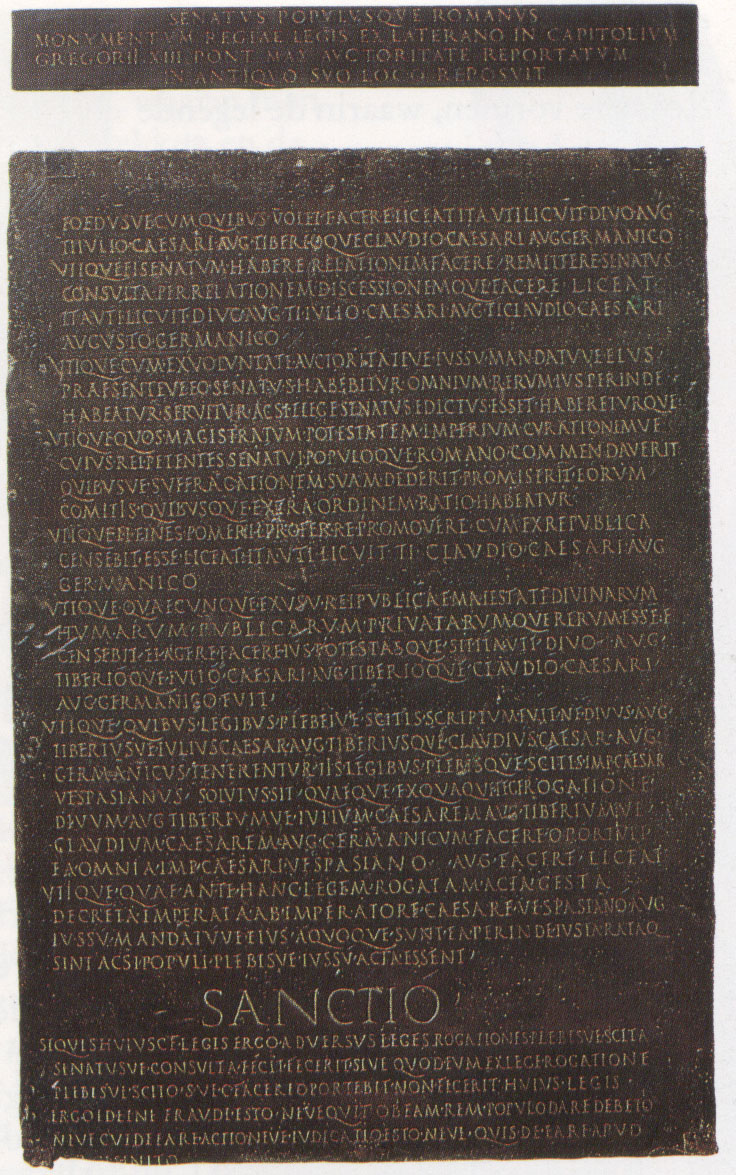 SENATVS POPVLVSQVE ROMANVS
MONVMENTVM REGIAE LEGIS EX LATERANO IN CAPITOLIVM
GREGORII XIII PONT MAX AVCTORITATE REPORTATVM
IN ANTIQVO SVO LOCO REPOSVIT
FOEDVSVE CVM QVIBVS VOLET FACERE LICEAT ITA VTI LICVIT DIVO AVG
TI IVLIO CAESARI AVG TIBERIOQVE CLAVDIO CAESARI AVG GERMANICO
VTIQVE EI SENATVM HABERE RELATIONEM FACERE REMITTERE SENATVS
CONSVLTA PER RELATIONEM DISCESSIONEMQVE FACERE LICEAT
ITA VTI LICVIT DIVO AVG TI IVLIO CAESARI AVG TI CLAVDIO CAESARI
AVGVSTO GERMANICO
VTIQVE CVM EX VOLVNTATE AVCTORITATEVE IVSSV MANDATVVE EIVS
PRAESENTEVE EO SENATVS HABEBITVR OMNIVM RERVM IVS PERINDE
HABEATVR SERVETVR AC SI E LEGE SENATVS EDICTVS ESSET HABERETVRQVE
VTIQVE QVOS MAGISTRATVM POTESTATEM IMPERIVM CVRATIONEMVE
CVIVS REI PETENTES SENATVI POPVLOQVE ROMANO COMMENDAVERIT
QVIBVSVE SVFFRAGATIONEM SVAM DEDERIT PROMISERIT EORVM
COMITIS QVIBVSQVE EXTRA ORDINEM RATIO HABEATVR
VTIQVE EI FINES POMERII PROFERRE PROMOVERE CVM EX REPVBLICA
CENSEBIT ESSE LICEAT ITA VTI LICVIT TI CLAVDIO CAESARI AVG
GERMANICO
VTIQVE QVAECVNQVE EX VSV REIPVBLICAE MAIESTATE DIVINARVM
HVMARVM PVBLICARVM PRIVATARVMQVE RERVM ESSE E
CENSEBIT EI AGERE FACERE IVS POTESTASQVE SIT ITA VTI DIVO AVG
TIBERIOQVE IVLIO CAESARI AVG TIBERIOQVE CLAVDIO CAESARI
AVG GERMANICO FVIT
VTIQVE QVIBVS LEGIBVS PLEBEIVE SCITIS SCRIPTVM FVIT NE DIVVS AVG
TIBERIVSVE IVLIVS CAESAR AVG TIBERIVSQVE CLAVDIVS CAESAR AVG
GERMANICVS TENERENTVR IIS LEGIBVS PLEBISQVE SCITIS IMP CAESAR
VESPASIANVS SOLVTVS SIT QVAEQVE EX QVAQVE LEGE ROGATIONE
DIVVM AVG TIBERIVMVE IVLIVM CAESAREM AVG TIBERIVMVE
CLAVDIVM CAESAREM AVG GERMANICVM FACERE OPORTVIT
EA OMNIA IMP CAESARI VESPASIANO AVG FACERE LICEAT
VTIQVE QVAE ANTE HANC LEGEM ROGATAM ACTA GESTA
DECRETA IMPERATA AB IMPERATORE CAESARE VESPASIANO AVG
IVSSV MANDATVVE EIVS A QVOQVE SVNT EA PERINDE IVSTA RATAQ
SINT AC SI POPVLI PLEBISVE IVSSV ACTA ESSENT
SANCTIO
SI QVIS HVIVSCE LEGIS ERGO ADVERSVS LEGES ROGATIONES PLEBISVE SCITA
SENATVSVE CONSVLTA FECIT FECERIT SIVE QVOD EVM EX LEGE ROGATIONE
PLEBISVE SCITO S VE C FACERE OPORTEBIT NON FECERIT HVIVS LEGIS
ERGO ID EI NE FRAVDI ESTO NEVE QVIT OB EAM REM POPVLO DARE DEBETO
NEVE CVI DE EA RE ACTIO NEVE IVDICATIO ESTO NEVE QVIS DE EA RE APVD